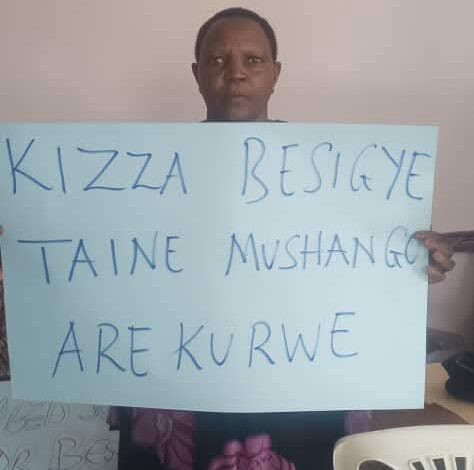 KIZZA BESIGYE
TAINE MUSHANGO
AREKURWE